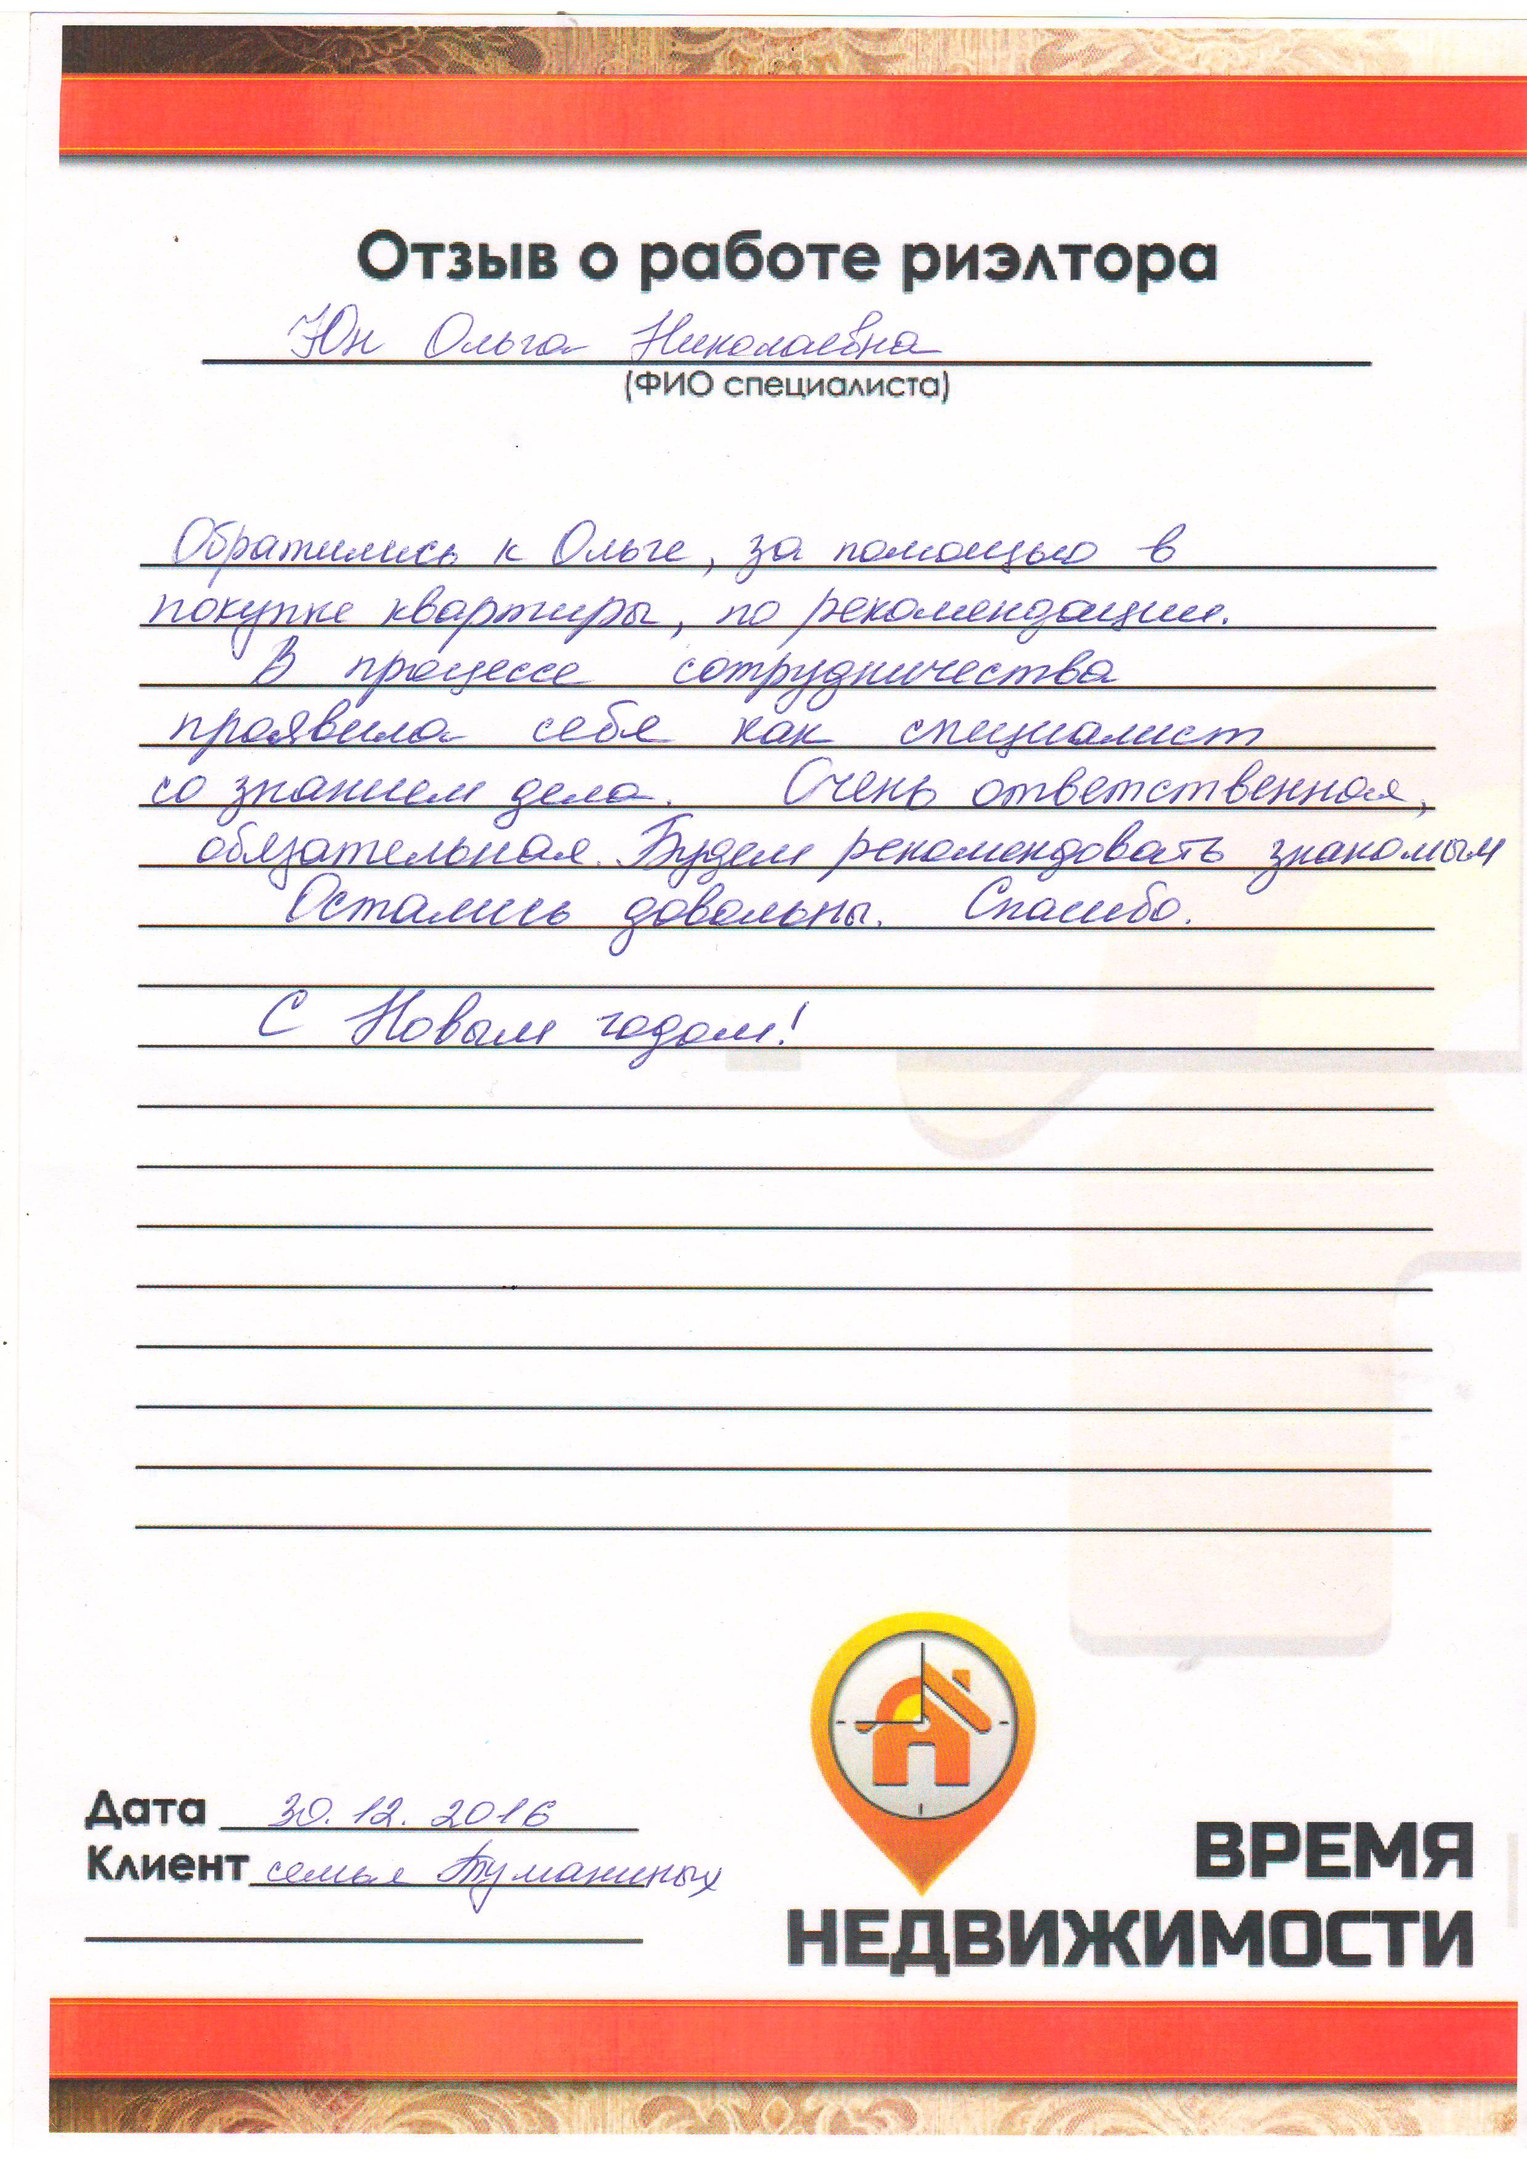 Отзыв о работе риэлтора
Юн Ольга Николаевна
(ФИО специалиста)
Обратились к Ольге, за помощью в
покупке квартиры, по рекомендации.
В процессе сотрудничества
проявила себя как специалист
со знанием дела. Очень ответственная,
обязательная. Будем рекомендовать знакомым
Остались довольны. Спасибо.
С Новым годом!
Дата 30.12.2016
Клиент семья Туманиных
ВРЕМЯ
НЕДВИЖИМОСТИ